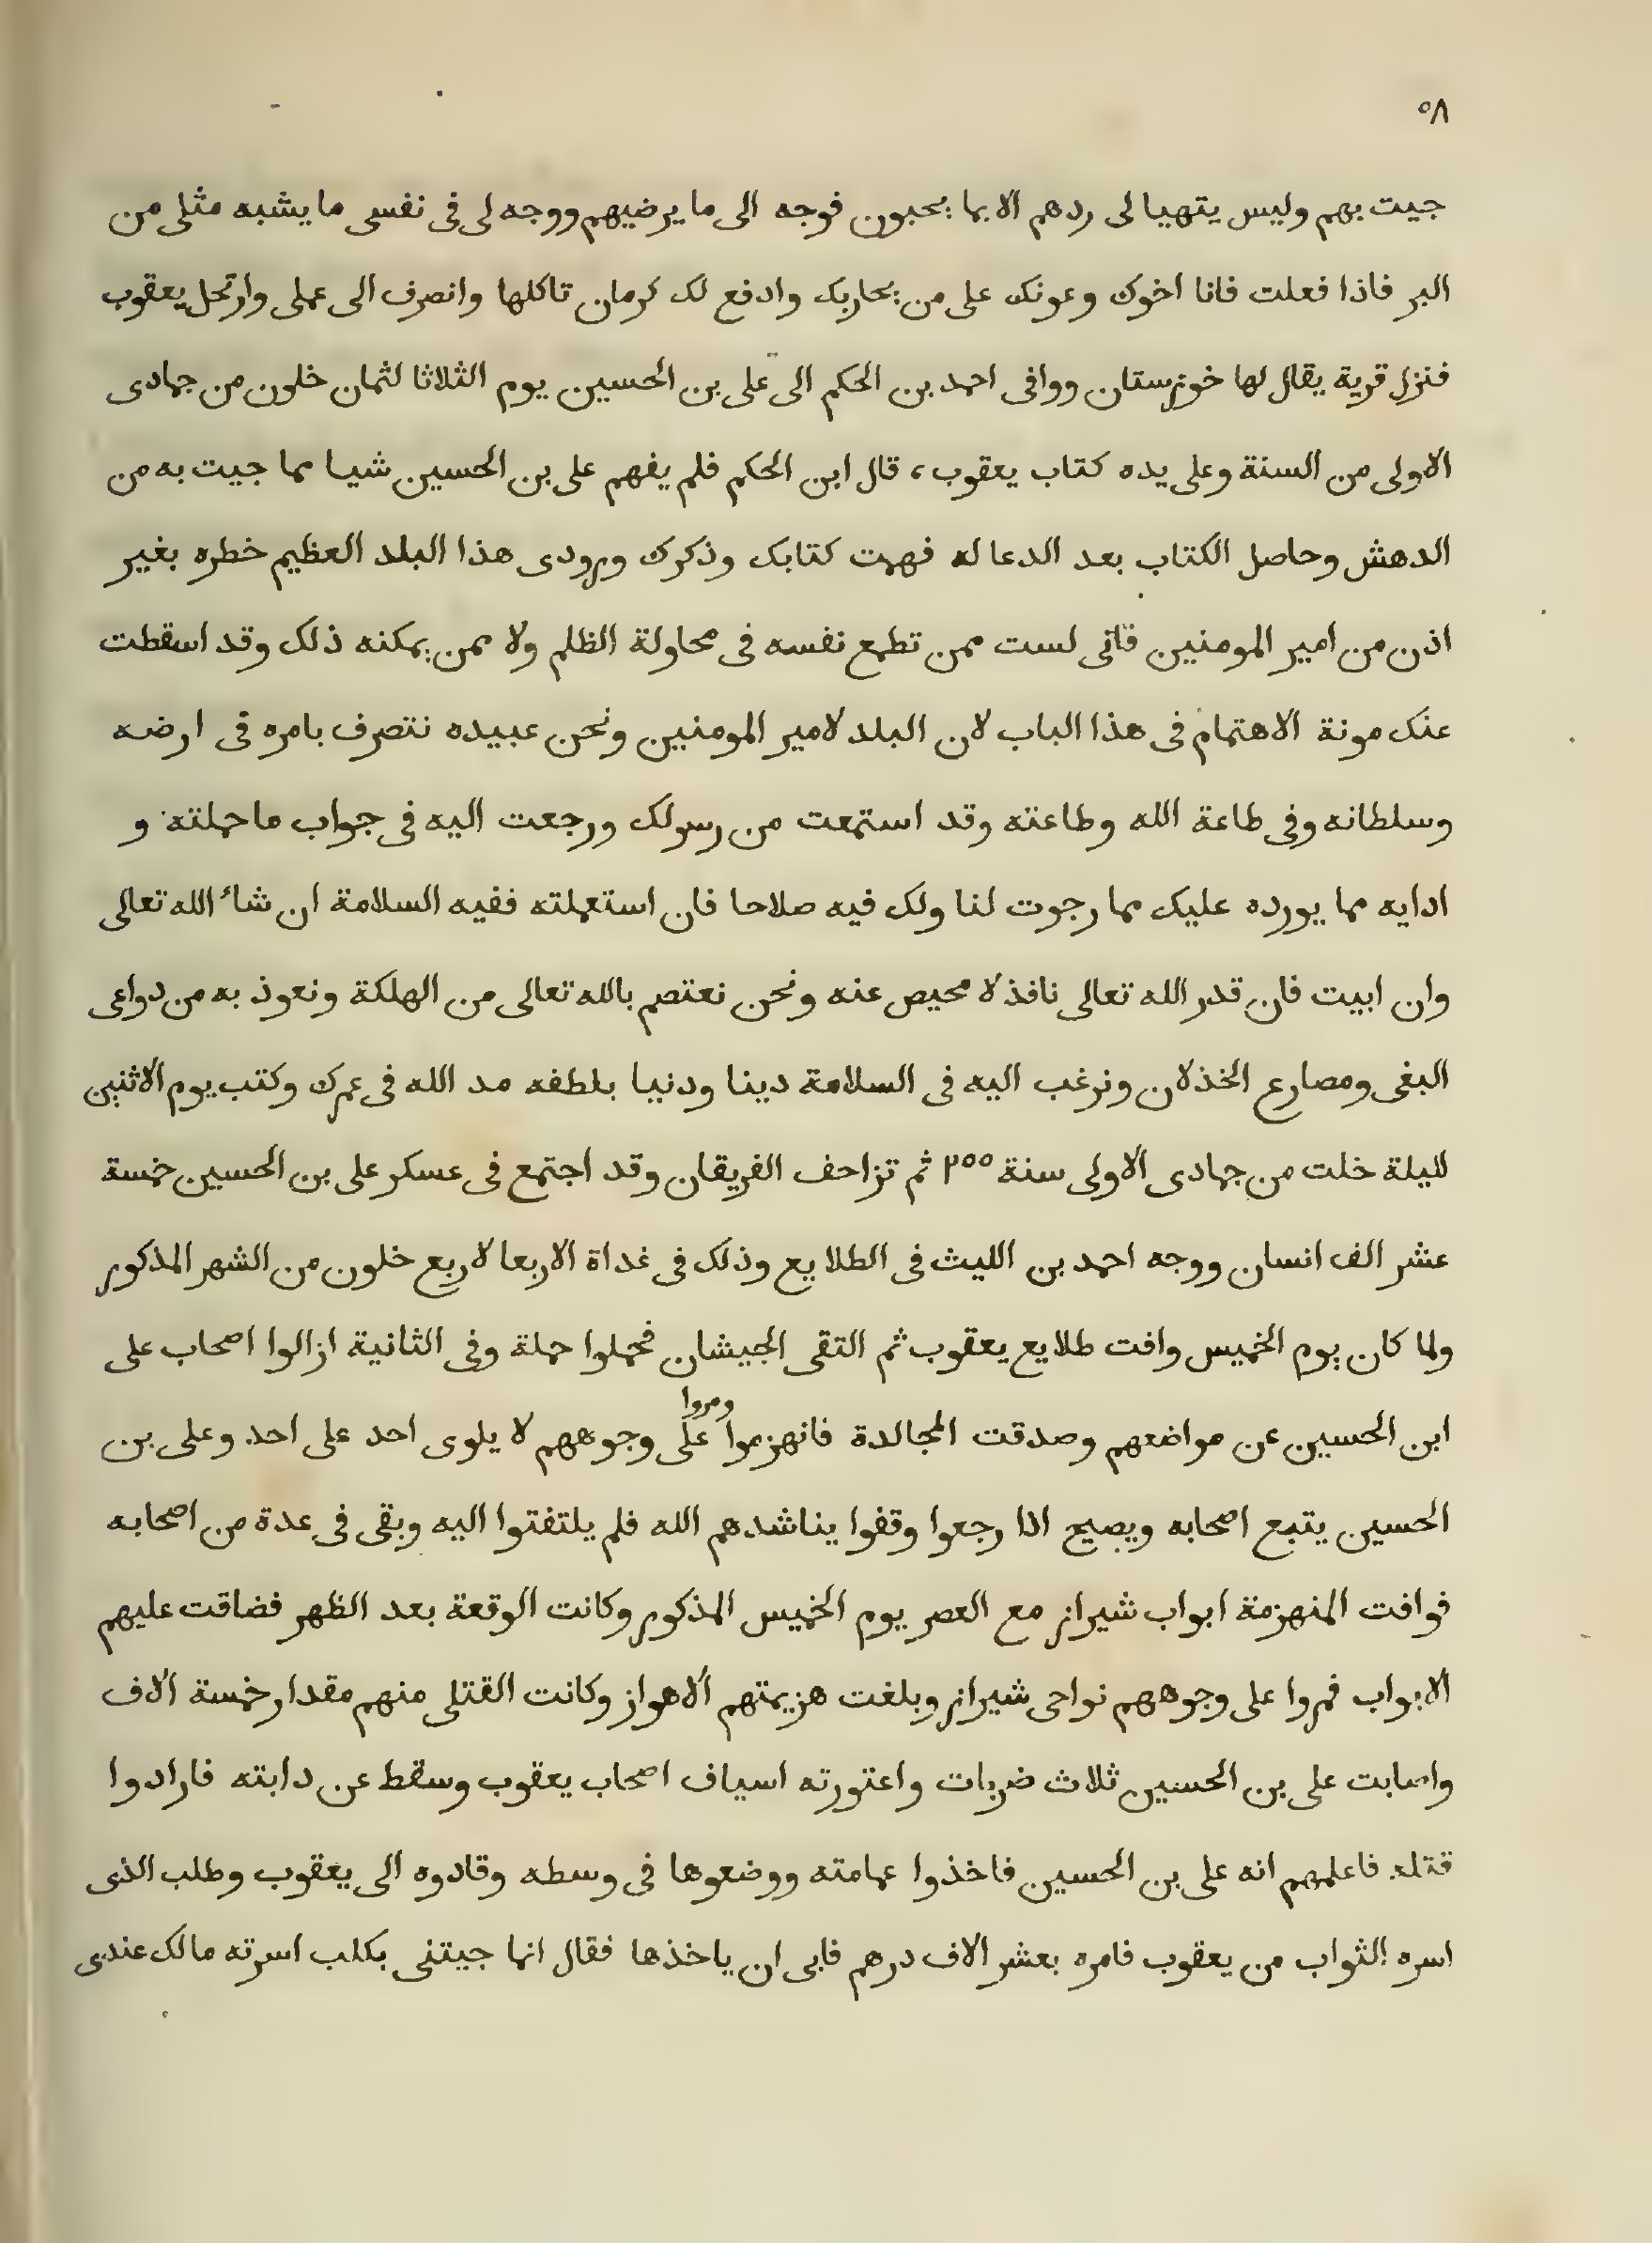 ٥٨
جيت بهم وليس يتهيا لى ردهم الا بما يحبون فوجه الى ما يرضيهم ووجه لى فى نفسى ما يشبه مثلى من
البر فاذا فعلت فانا اخوك وعونك على من يحاربك وادفع لك كرمان تاكلها وانصرف الى عملى وارتحل يعقوب
فنزل قرية يقال لها خوزستان ووافى احمد بن الحكم الى على بن الحسين يوم الثلاثا لثمان خلون من جمادى
الاولى من السنة وعلى يده كتاب يعقوب، قال ابن الحكم فلم يفهم على بن الحسين شيا مما جيت به من
الدهش وحاصل الكتاب بعد الدعا له فهمت كتابك وذكرك ورودى هذا البلد العظيم خطره بغير
اذن من امير المومنين فانى لست ممن تطمع نفسه فى محاولة الظلم ولا ممن يمكنه ذلك وقد اسقطت
عنك مونة الاهتمام فى هذا الباب لان البلد لامير المومنين ونحن عبيده نتصرف بامره فى ارضه
وسلطانه وفى طاعة الله وطاعته وقد استمعت من رسولك ورجعت اليه فى جواب ما حملته و
ادايه مما يورده عليك مما رجوت لنا ولك فيه صلاحا فان استعملته ففيه السلامة ان شاء الله تعالى
وان ابيت فان قدر الله تعالى نافذ لا محيص عنه ونحن نعتصم بالله تعالى من الهلكة ونعوذ به من دواعى
البغى ومصارع الخذلان ونرغب اليه فى السلامة دينا ودنيا بلطفه مد الله فى عمرك وكتب يوم الاثنين
لليلة خلت من جمادى الاولى سنة ٢٥٥ ثم تزاحف الفريقان وقد اجتمع فى عسكر على بن الحسين خمسة
عشر الف انسان ووجه احمد بن الليث فى الطلايع وذلك فى غداة الاربعا لاربع خلون من الشهر المذكور
ولما كان يوم الخميس وافت طلايع يعقوب ثم التقى الجيشان فحملوا حملة وفى الثانية ازالوا اصحاب على
ابن الحسين عن مواضعهم وصدقت المجالدة فانهزموا ومروا على وجوههم لا يلوى احد على احد وعلى بن
الحسين يتبع اصحابه ويصيح اذا رجعوا وقفوا يناشدهم الله فلم يلتفتوا اليه وبقى فى عدة من اصحابه
فوافت المنهزمة ابواب شيراز مع العصر يوم الخميس المذكور وكانت الوقعة بعد الظهر فضاقت عليهم
الابواب فمروا على وجوههم نواحى شيراز وبلغت هزيمتهم الاهواز وكانت القتلى منهم مقدار خمسة الاف
واصابت على بن الحسين ثلاث ضربات واعتورته اسياف اصحاب يعقوب وسقط عن دابته فارادوا
قتله فاعلمهم انه على بن الحسين فاخذوا عمامته ووضعوها فى وسطه وقادوه الى يعقوب وطلب الذى
اسره الثواب من يعقوب فامره بعشر الاف درهم فابى ان ياخذها فقال انما جيتنى بكلب اسرته مالك عندى